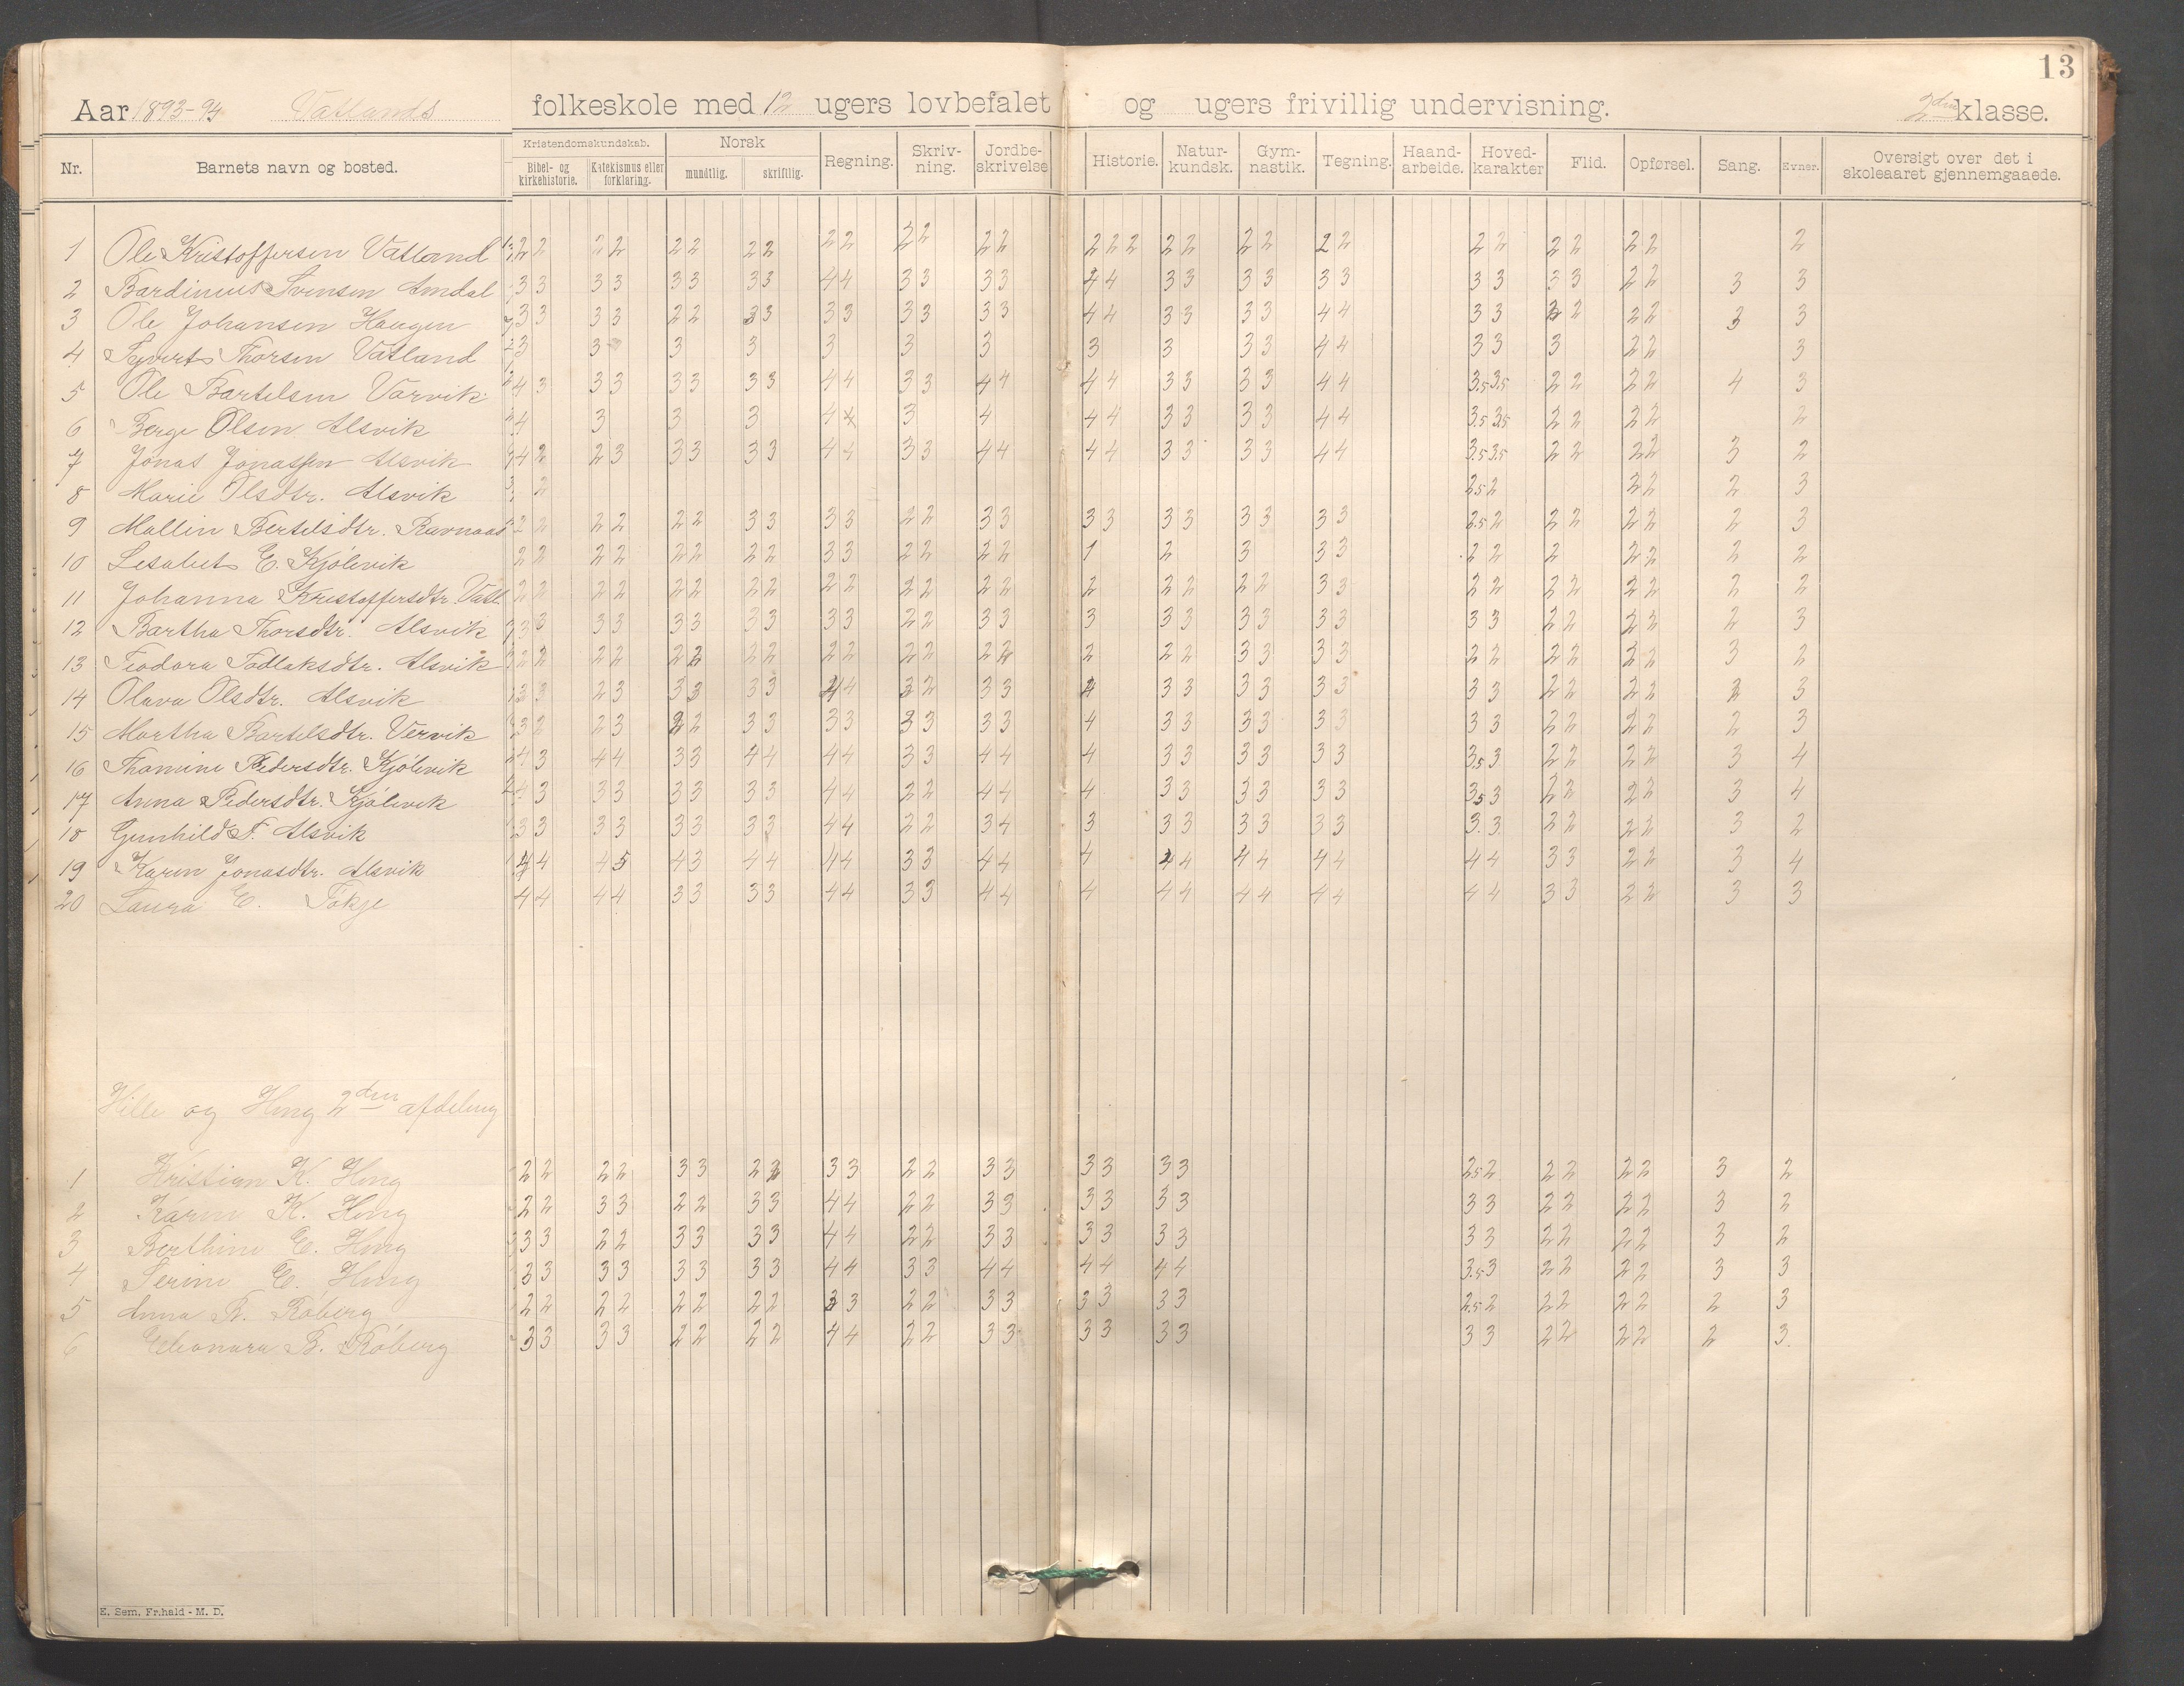 13
Aar 1893-94 Vatlands folkeskole med 12 ugers lovbefalet og ugers frivillig undervisning. 2den klasse.
Nr. Barnets navn og bosted. Kristendomskundskab. Bibel- og kirkehistorie. Katekismus eller forklaring. Norsk mundtlig. skriftlig. Regning. Skriv-ning. Jordbe-skrivelse Historie. Natur-kundsk. Gym-nastik. Tegning. Haand-arbeide. Hoved-karakter Flid. Opførsel. Sang. Evner. Oversigt over det i skoleaaret gjennemgaaede.
1 Ole Kristoffersen Vatland 2 2 2 2 2 2 2 2 2 2 2 2 2 2 2 2 2 2 2 2 2 2 2 2 2 2 2 2 2 2
2 Bardinius Svensen Amdal 3 3 3 3 3 3 3 3 4 4 3 3 3 3 4 4 3 3 3 3 3 3 3 3 3 3 2 2 3 3
3 Ole Johansen Haugen 3 3 3 3 2 2 3 3 3 3 3 3 3 3 4 4 3 3 3 3 4 4 3 3 2 2 2 2 3 3
4 Thorsen Vatland 3 3 3 3 3 3 3 3 3 3 3 4 4 3 3 3 2 2 3
5 Ole Bartelsen Varvik 4 3 3 3 3 3 3 3 4 4 3 3 4 4 4 4 3 3 3 3 4 4 3.5 3.5 2 2 2 2 4 3
6 Berge Olsen Alsvik 4 3 3 3 4 x 3 4 4 4 3 3 3 3 4 4 3.5 3.5 2 2 2 2 2
7 Jonas Jonassen Alsvik 4 2 2 3 3 3 3 3 4 4 3 3 4 4 4 4 3 3 3 3 4 4 3.5 3.5 2 2 2 2 3 2
8 Marie Olsdtr. Alsvik 2 2.5 2 2 2 2 3
9 Mallin Bertelsdtr. Ravnaas 2 2 2 2 2 2 3 3 3 3 2 2 3 3 3 3 3 3 3 3 3 3 2.5 2 2 2 2 2 2 3
10 Lesabet E. Kjölevik 2 2 2 2 2 2 2 2 3 3 2 2 2 2 1 2 3 3 3 2 2 2 2 2 2 2
11 Johanna Kristoffersdtr. Vatl. 2 2 2 2 2 2 2 2 2 2 2 2 2 2 2 2 2 2 2 3 3 2 2 2 2 2 2 2 2
12 Bartha Thorsdtr. Alsvik 3 3 3 3 3 3 3 3 3 3 2 2 3 3 3 3 3 3 3 3 3 3 3 2 2 2 2 2 3
13 Teodora Todlaksdtr. Alsvik 2 2 2 2 2 2 2 2 2 2 2 2 2 2 2 2 2 3 3 3 3 2 2 2 2 2 2 3 2
14 Olava Olsdtr. Alsvik 3 3 2 3 3 3 3 3 4 4 3 2 3 3 4 3 3 3 3 3 3 3 3 2 2 2 2 2 3
15 Martha Bartelsdtr. Vervik 3 2 2 3 2 2 3 3 3 3 3 3 3 3 4 3 3 3 3 3 3 3 3 2 2 2 2 2 3
16 Thomine Pedersdtr. Kjölevik 4 3 4 4 3 3 4 4 4 4 3 3 4 4 4 3 3 3 3 3 3 3.5 3 2 2 2 2 3 4
17 Anna Pedersdtr. Kjölevik 4 3 3 3 3 3 3 3 4 4 2 2 4 4 4 3 3 3 3 3 3 3.5 3 2 2 2 2 3 4
18 Gunhild T. Alsvik 3 3 3 3 3 3 3 3 4 4 2 2 3 4 3 3 3 3 3 3 3 3. 3. 2 2 2 2 3 2
19 Karen Jonasdtr. Alsvik 4 4 4 5 4 3 4 4 4 4 3 3 4 4 4 4 4 4 4 4 4 4 4 3 3 2 2 3 4
20 Laura E. Tökje 4 4 4 4 3 3 3 3 4 4 3 3 4 4 4 4 4 4 4 4 4 4 4 3 3 2 2 3 3
Hille og Hing 2den afdeling
1 Kristian K. Hing 2 2 2 2 3 3 2 2 3 3 2 2 3 3 3 3 3 3 2.5 2 2 2 2 2 3 2
2 Karen K. Hing 2 2 3 3 2 2 3 3 4 4 2 2 3 3 3 3 3 3 3 3 2 2 2 2 3 2
3 Berthine E. Hing 3 3 2 2 3 3 3 3 4 4 2 2 3 3 3 3 3 3 3 3 2 2 2 2 3 2
4 Serine E. Hing 3 3 3 3 3 3 3 3 4 4 3 3 4 4 4 4 4 4 3.5 3 2 2 2 2 3 3
5 Anna B. Röberg 2 2 2 2 2 2 2 2 3 3 2 2 3 3 3 3 3 3 2.5 2 2 2 2 2 2 3
6 B. Röberg 3 3 3 3 2 2 2 2 4 4 2 2 3 3 3 3 3 3 3 3 2 2 2 2 2 3.
E. Sem, Fr.hald - M. D.